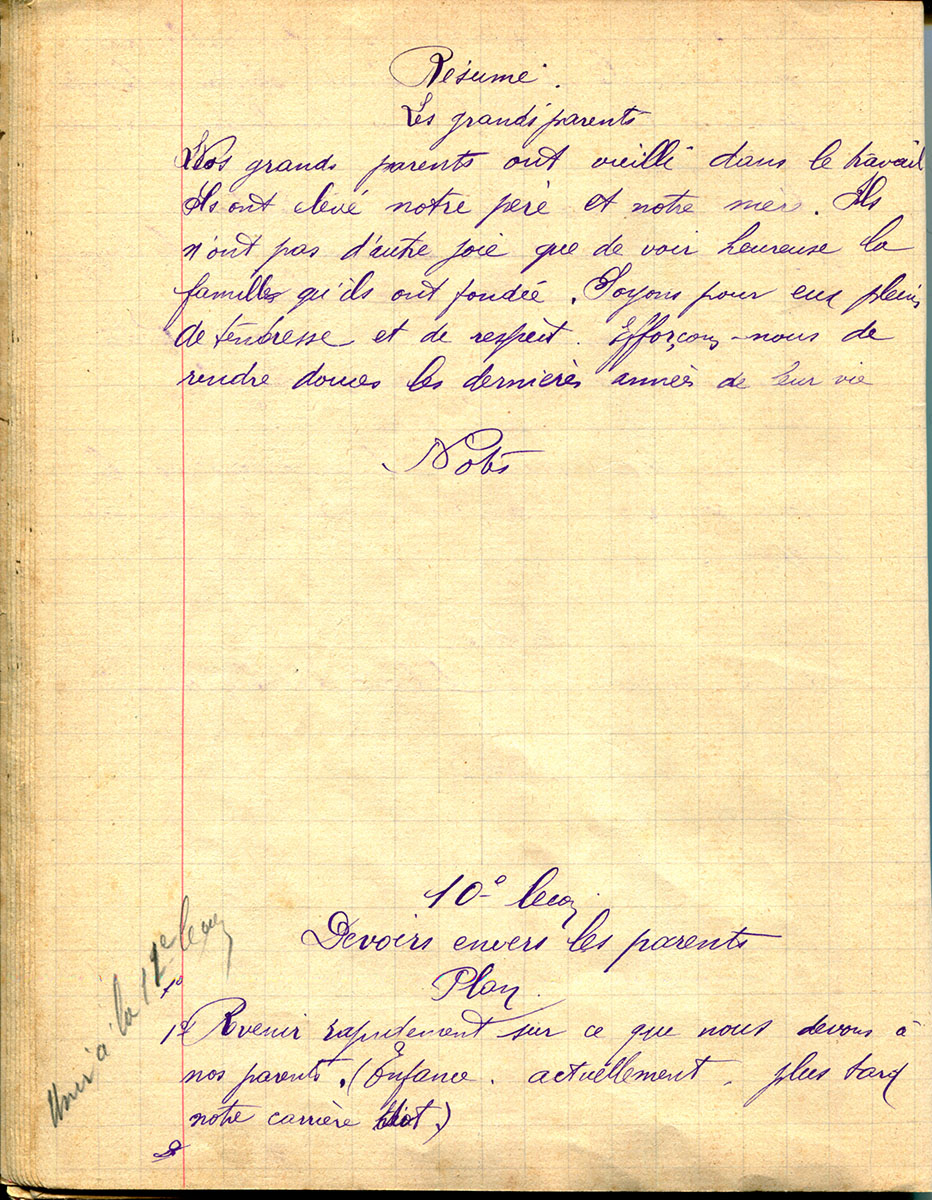 Résumé.
Les grands parents
Nos grands parents ont vieilli dans le travail
Ils ont élevé notre père et notre mère. Ils
n'ont pas d'autre joie que de voir heureuse la
famille qu'ils ont fondée. Soyons pour eux pleins
de tendresse et de respect. Efforçons-nous de
rendre douces les dernières années de leur vie
Nota
10e leçon
Devoirs envers les parents
Plan
1º
1º Revenir rapidement sur ce que nous devons à
nos parents. (Enfance. actuellement. plus tard
notre carrière
Unir à la 11e leçon